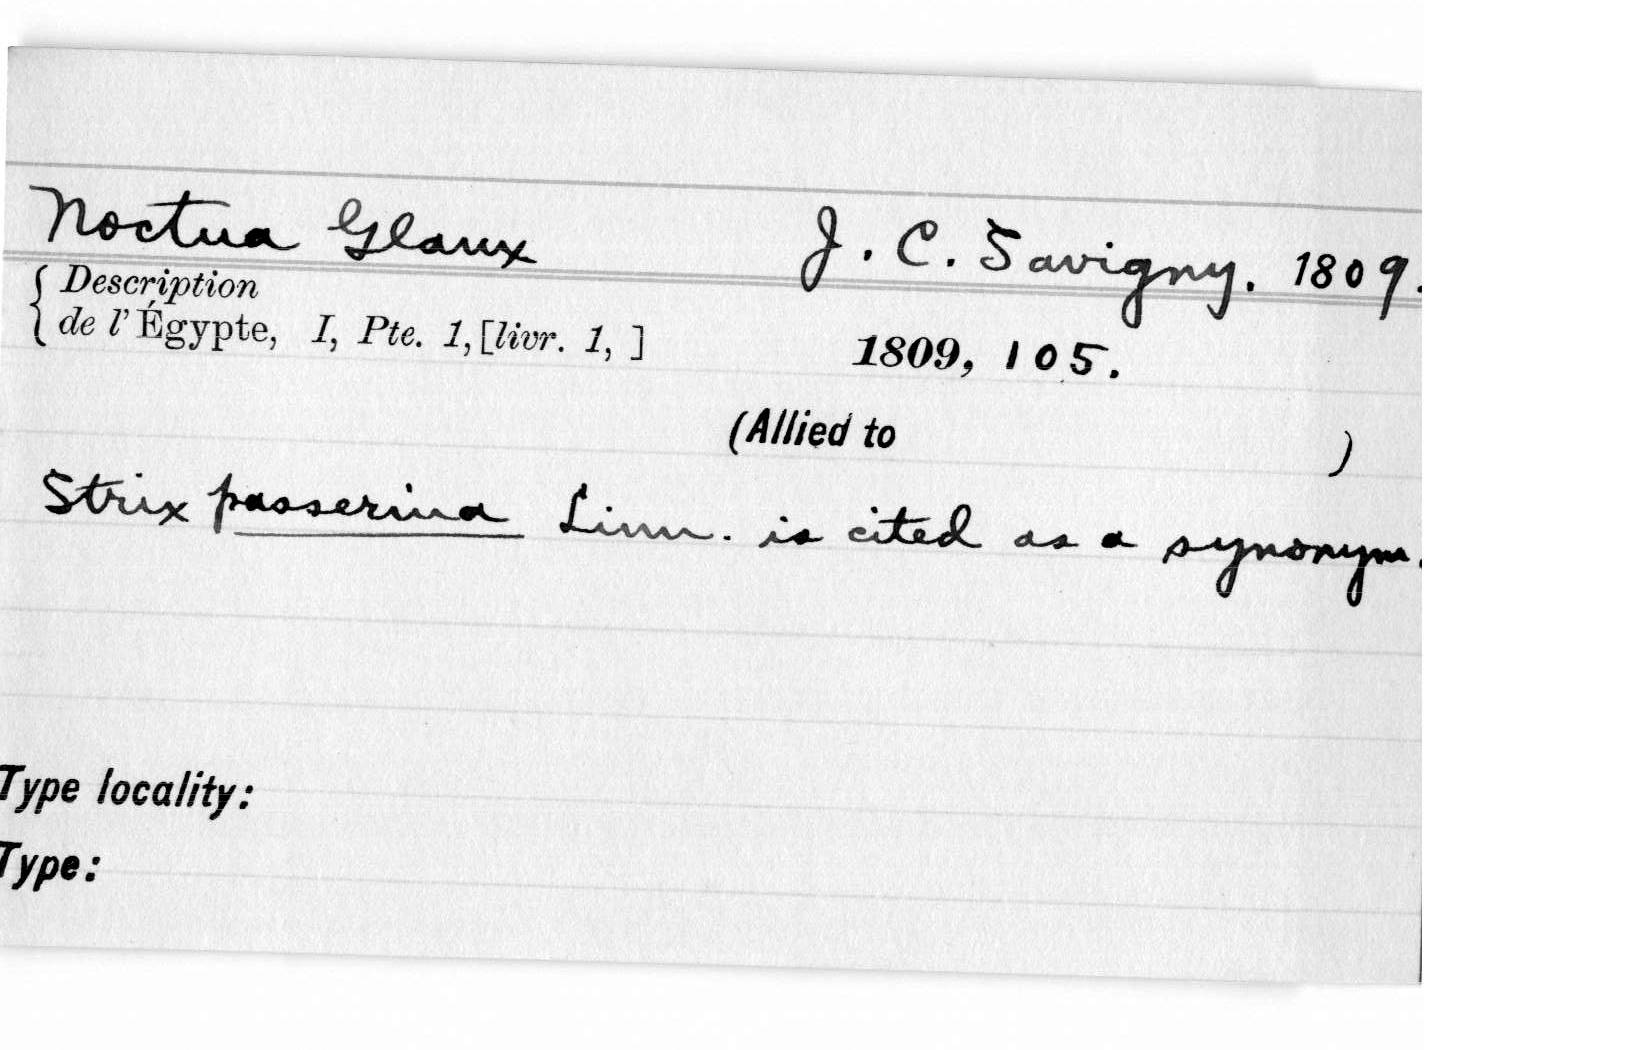 Noctua Glaux J. C. Savigny. 1809.
{ Description
de l' Égypte, I, Pte. 1, [livr. 1, ] 1809, 105.
(Allied to )
Strix passerina Linn. is cited as a synonym.
Type locality:
Type: